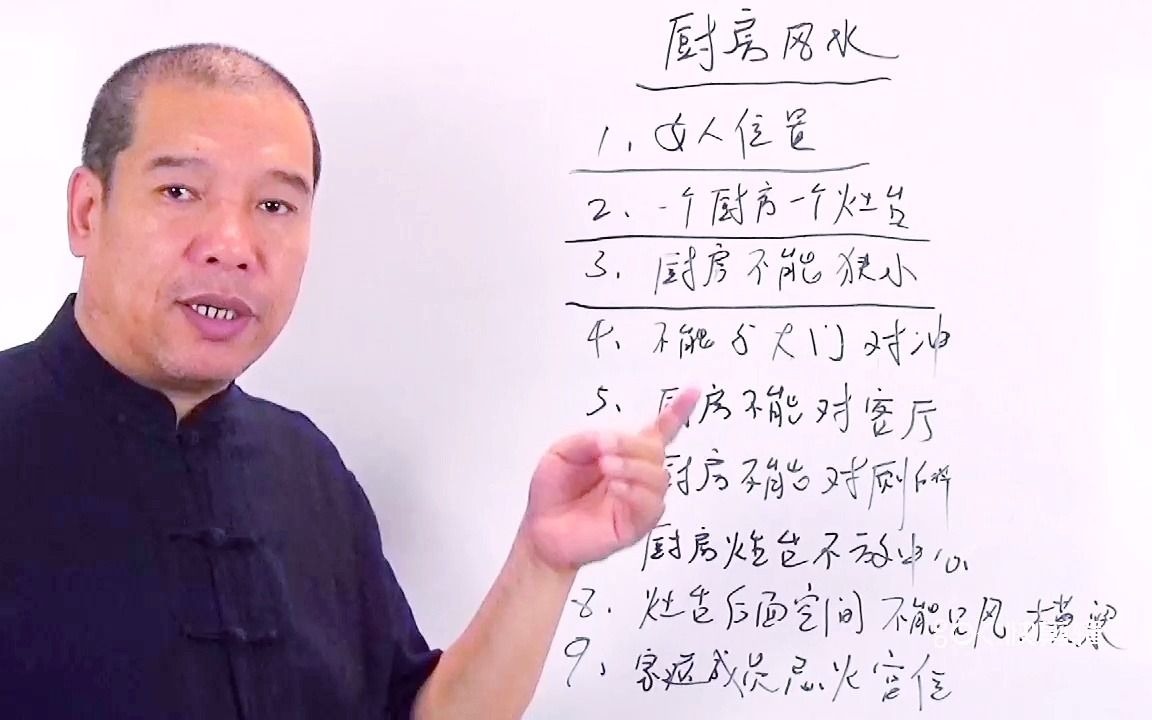 厨房风水
1、女人位置
2、一个厨房一个灶台
3、厨房不能狭小
4、不能与大门对冲
5、厨房不能对客厅
厨房不能对厕所
厨房灶台不放中心
8、灶台后面空间不能风横梁
9、家庭成员忌火宫位